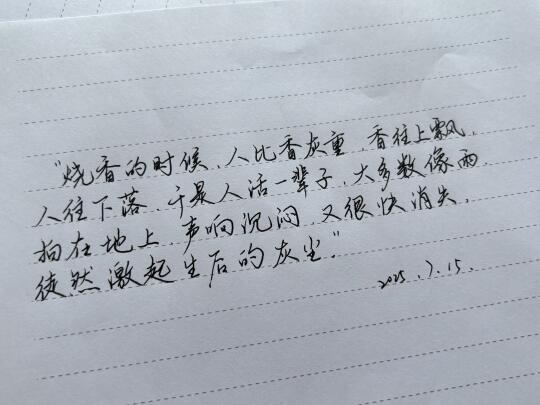 “烧香的时候，人比香灰重，香往上飘，
人往下落，于是人活一辈子，大多数像雨
拍在地上，声响沉闷，又很快消失，
徒然激起生后的灰尘。”
2025.7.15.